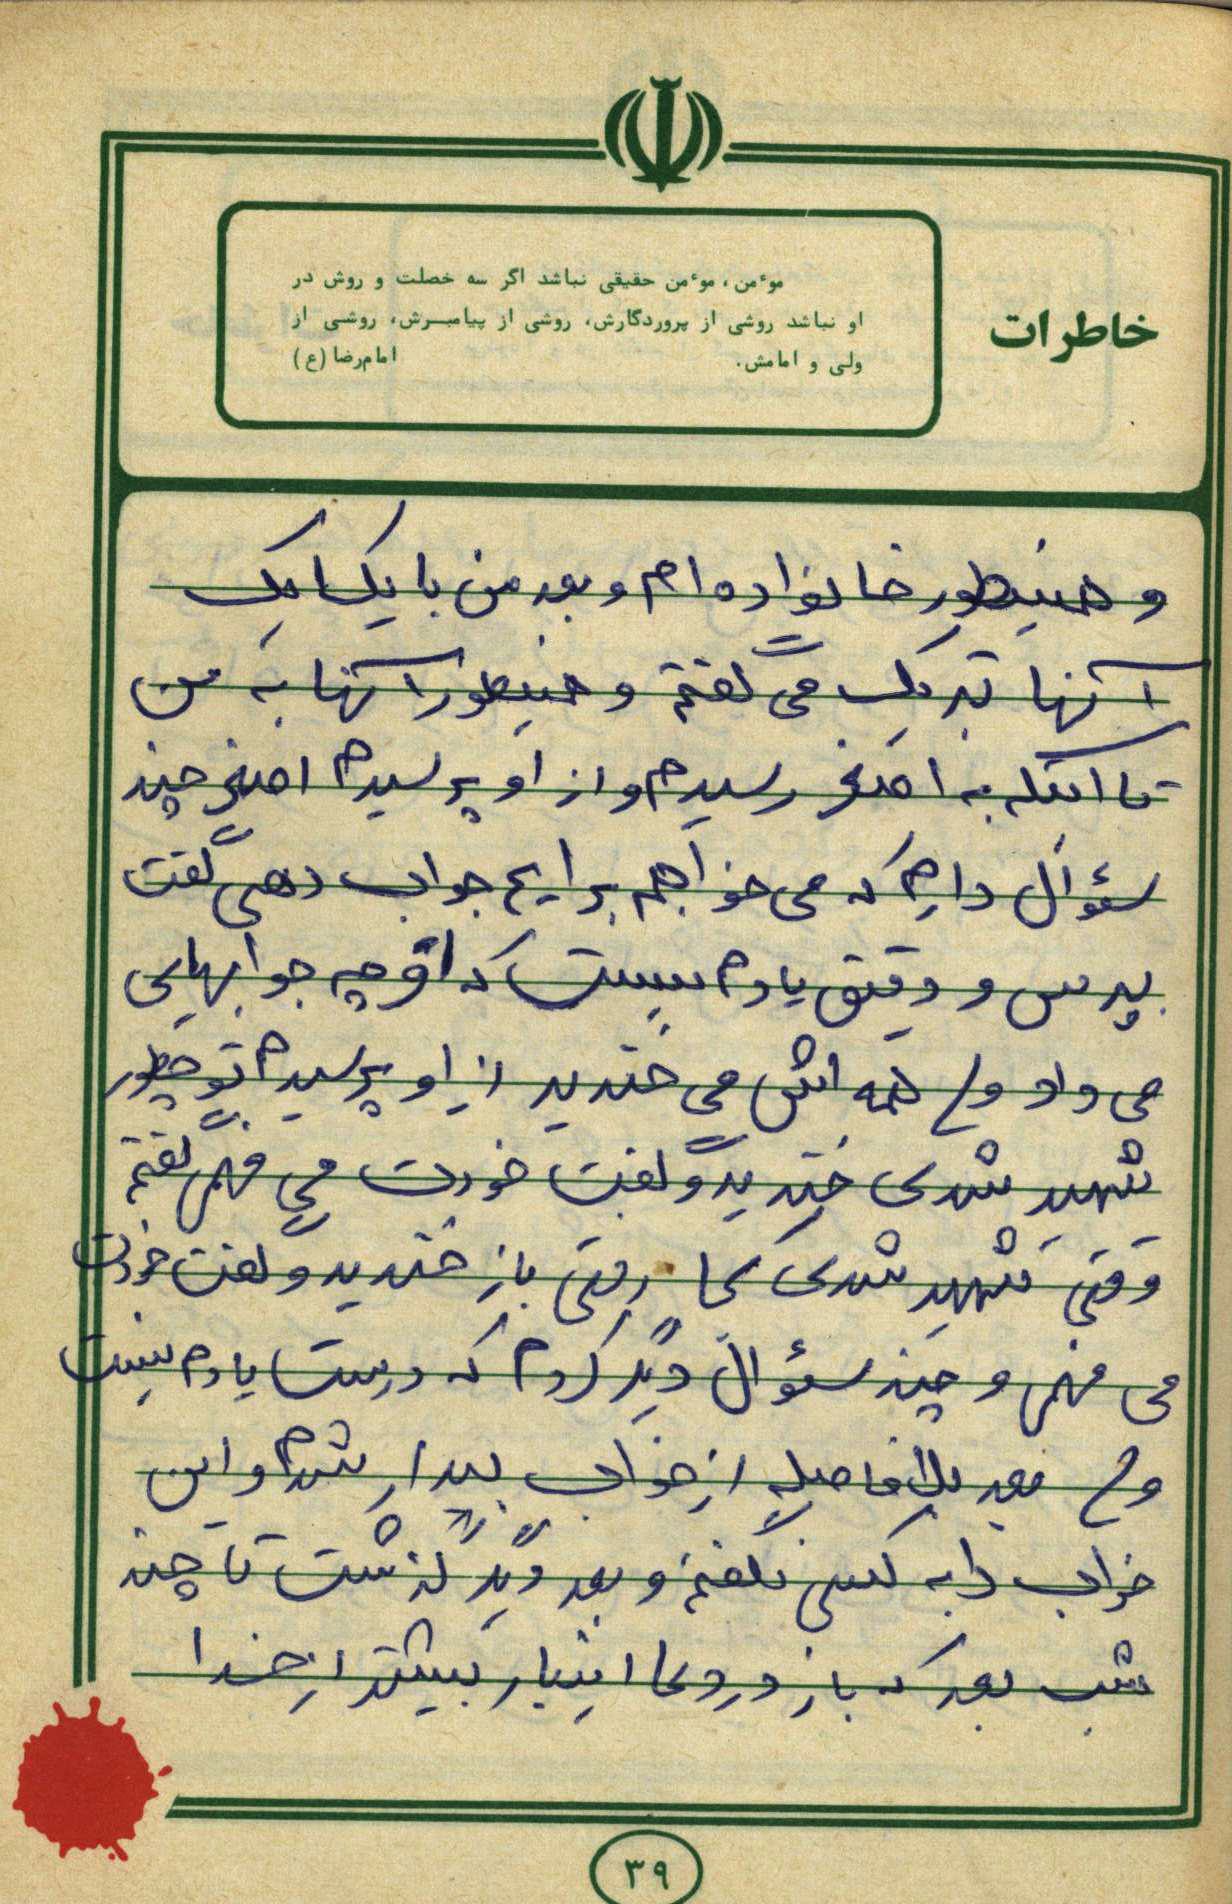 خاطرات
موٴمن، موٴمن حقیقی نباشد اگر سه خصلت و روش در
او نباشد روشی از پروردگارش، روشی از پیامبرش، روشی از
ولی و امامش.
امام‌رضا (ع)
و همینطور خانواده ام و بعد من با یکایک
آنها تبریک می گفتم و همینطور آنها به من
تا اینکه به اصغر رسیدم و از او پرسیدم اصغر چند
سئوال دارم که می خواهم برایم جواب دهی گفت
بپرس و دقیق یادم نیست که او چه جوابهایی
می داد و همه اش می خندید از او پرسیدم تو چطور
شهید شدی خندید و گفت خودت می فهمی گفتم
وقتی شهید شدی کجا رفتی باز خندید و گفت خودت
می فهمی و چند سئوال دیگر کردم که درست یادم نیست
و بعد بلافاصله از خواب بیدار شدم و این
خواب را به کسی نگفتم و بعد دیگر گذشت تا چند
شب بعد که باز در دعا اینبار بیشتر از خدا
۳۹